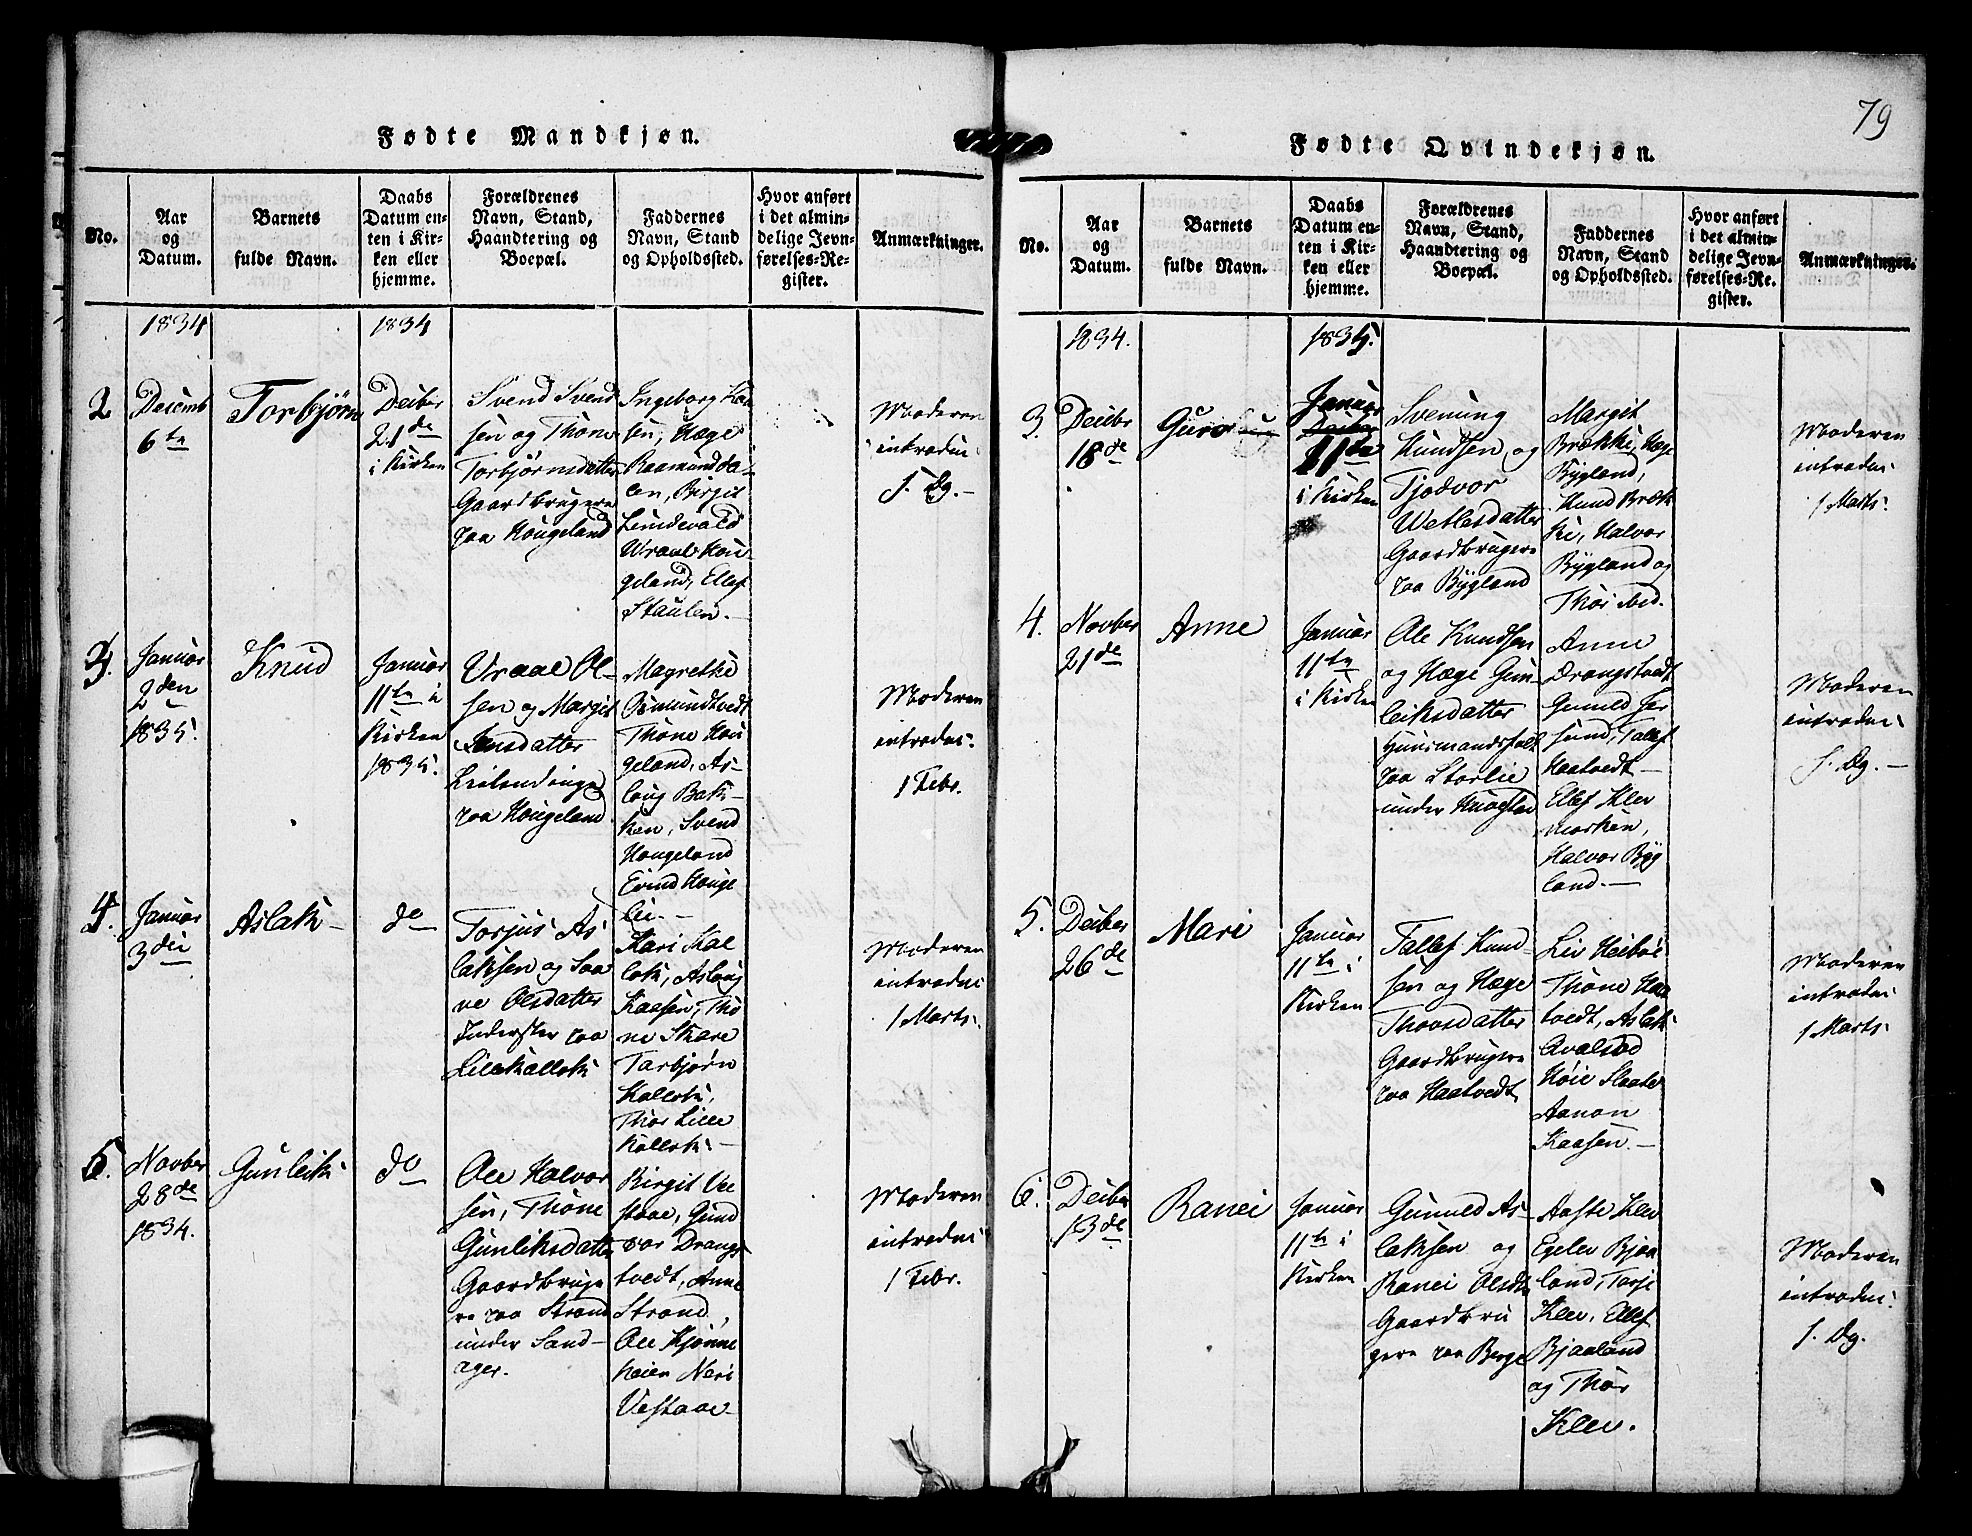 79
Fødte Mandkjøn.
No.
Aar
og
Datum.
Barnets
fulde Navn.
Daabs
Datum en-
ten i Kir-
ken eller
hjemme.
Forældrenes
Navn, Stand,
Haandtering og
Boepæl.
Faddernes
Navn, Stand
og Opholdssted.
Hvor anført
i det almin-
delige Jevn-
førelses-Re-
gister.
Anmærkninger.
1834
1834
2
Desemb
6te
Torbjørn
Deibr
21de
i Kirken
Svend Svend
sen og Thone
Torbjørnsdatter
Gaardbrugere
paa Hougeland
Ingeborg Kaa
sen, Hæge
Raamundda-
len, Birgit
Lundevald
Wraal Hou
geland, Ellef
Staulen.
Moderen
introdu:
s. Dg.
3.
Januar
2den
1835.
Knud
Januar
11te i
Kirken
1835.
Vraal Ol-
sen og Margit
Jensdatter
Leilendinge
paa Hougeland
Magrethe
Omundtvedt
Thone Hou
geland, As-
loug Bak-
ken, Svend
Hougeland
Eivind Houge
lei.
Moderen
introdu:
1 Febr.
4.
Januar
3die
Aslak
do
Torjus As
laksen og Saa
ve Olsdatter
Inderster paa
Lilekallok
Kari Kal
lok, Asloug
Kaasen, Tho
ne Skare
Torbjørn
Kallok,
Thor Lille
Kallok
Moderen
introdu:
1 Marts.
5.
Novber
28de
1834.
Gunleik
do
Ole Halvor
sen, Thone
Gunleiksdatter
Gaardbruge
re paa Strand
under Sand-
ager.
Birgit Ve
staae, Gund
vor Drangs
tvedt, Anne
Strand,
Ole Kjønne
heien Neri
Vestaae
Moderen
introdu:
1 Febr.
Fødte Qvindekjøn.
No.
Aar
og
Datum.
Barnets
fulde Navn.
Daabs
Datum en-
ten i Kir-
ken eller
hjemme.
Forældrenes
Navn, Stand,
Haandtering og
Boepæl.
Faddernes
Navn, Stand
og Opholdssted.
Hvor anført
i det almin-
delige Jevn-
førelses-Re-
gister.
Anmærkninger.
1834.
1835.
3.
Deibr
18de
Guro
Januar
11te
i Kirken
Svenung
Knudsen og
Tjodvor
Wetlesdatter
Gaardbrugere
paa Bygland
Margit
Brækki, Hæge
Bygland,
Knud Bræk
ki, Halvor
Bygland og
Thor ibid.
Moderen
introdu:
1 Marts.
4.
Novber
21de
Anne
Januar
11te
i Kirken
Ole Knudsen
og Hæge Gun-
leiksdatter
Huusmandsfolk
paa Storlie
under
Anne
Drangstvedt
Gunuld Jer
sund, Tallef
Haatvedt
Ellef Klev
marken,
Halvor Byg
land.
Moderen
introdu:
s. Dg.
5.
Deiber
26de
Mari
Januar
11te i
Kirken
Tallef Knud-
sen og Hæge
Thorsdatter
Gaardbrugere
paa Haatvedt
Liv Heibøe
Thone Haa
tvedt, Aslak
Qvalsod
Høie Slaate
Aanon
Kaasen.
Moderen
introdu:
1 Marts.
6.
Deiber
13de
Ranei
Januar
11te i
Kirken
Gunuld As-
laksen og
Ranei Olsdtr
Gaardbru
gere paa Berge
Aaste Klev
Egelev Bjaa
land, Torje
Klev, Ellef
Bjaaland
og Thor
Klev.
Moderen
introdu:
s. Dg.